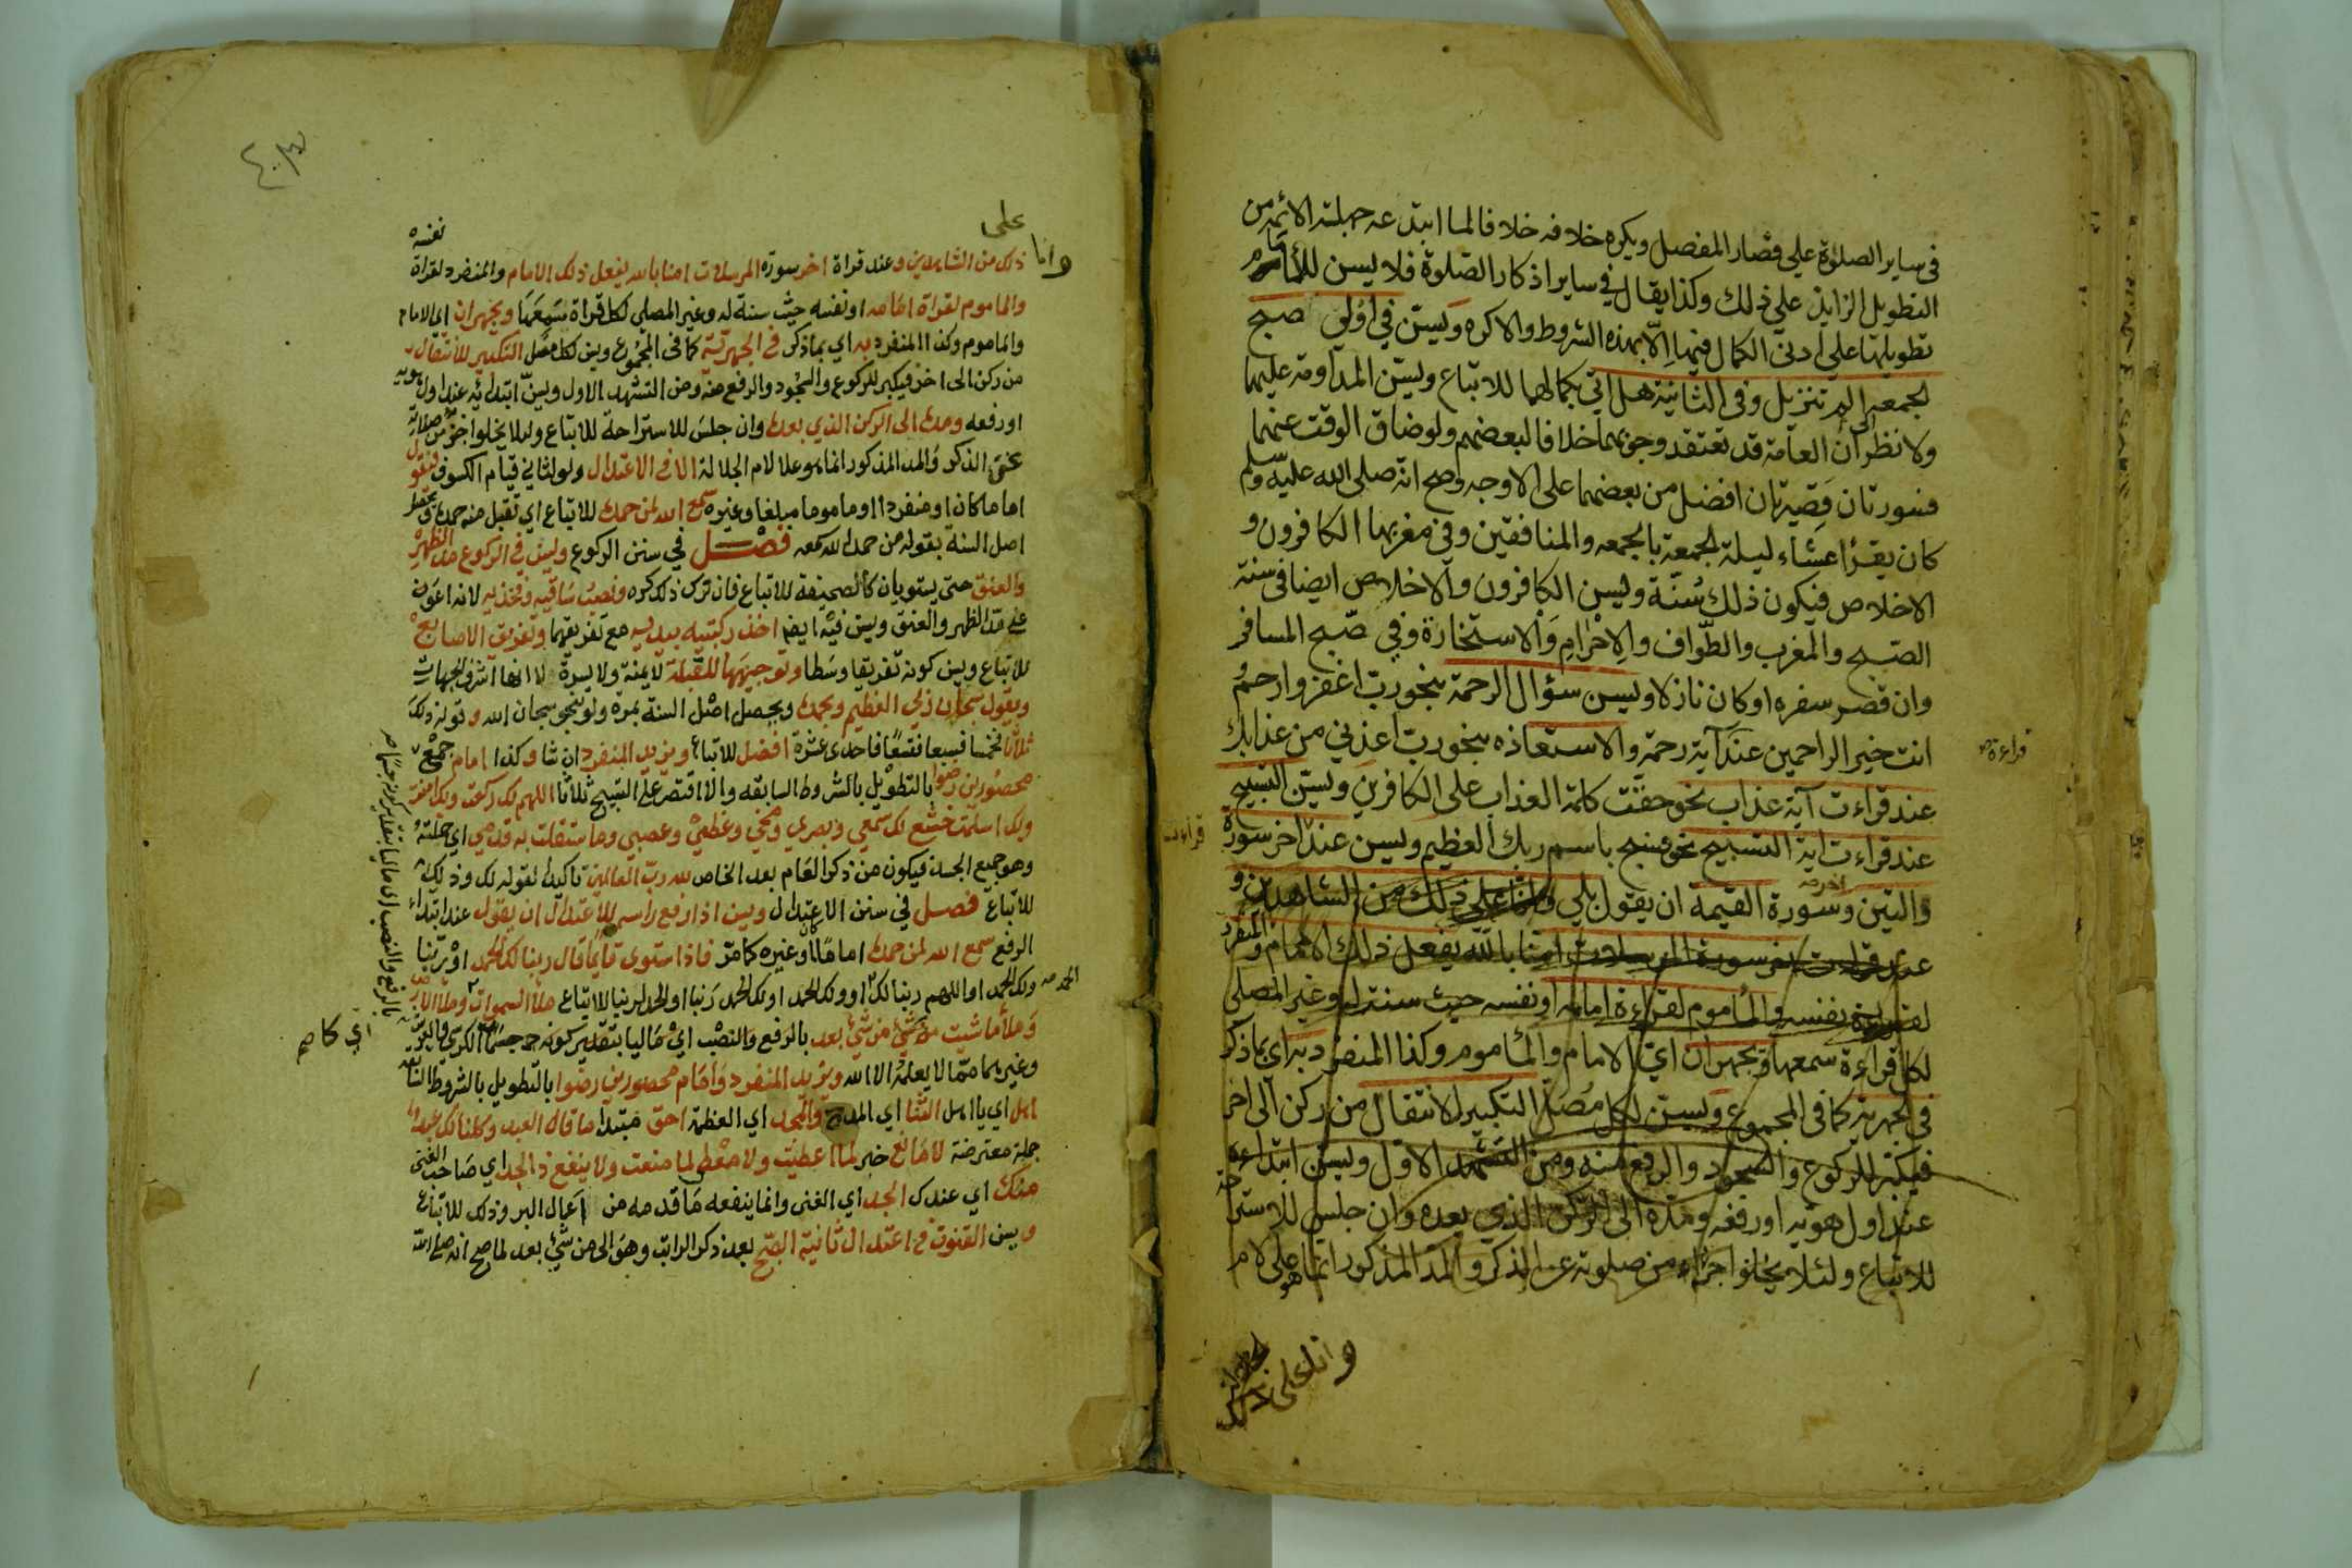 في ساير الصلوة على قصار المفصل ويكره خلافه خلافا لما ابتدعه جهلة الائمة من
التطويل الزايد على ذلك وكذا يقال في ساير اذكار الصلوة فلا يسن للامام
تطويلها على ادنى الكمال فيها الا بهذه الشروط والا كره ويسن في اولى صبح
الجمعه الم تنزيل وفي الثانية هل اتى بكمالهما للاتباع ويسن المداومة عليهما
ولا نظر الى ان العامة قد تعتقد وجوبهما خلافا لبعضهم ولو ضاق الوقت عنهما
فسورتان قصيرتان افضل من بعضهما على الاوجه وصح انه صلى الله عليه وسلم
كان يقرأ عشاء ليلة الجمعة بالجمعه والمنافقين وفي مغربها الكافرون و
الاخلاص فيكون ذلك سنة ويسن الكافرون والاخلاص ايضا في سنة
الصبح والمغرب والطواف والاحرام والاستخارة وفي صبح المسافر
وان قصر سفره او كان نازلا ويسن سؤال الرحمة بنحو رب اغفر وارحم و
انت خير الراحمين عند آية رحمة والاستعاذه بنحو رب اعذني من عذابك
قراءة
عند قراءت آية عذاب نحو حقت كلمة العذاب على الكافرين ويسن التسبيح
عند قراءت اية التسبيح نحو فسبح باسم ربك العظيم ويسن عند اخر سورة
قراءت
والتين وسورة القيمة ان يقول بلى وانا على ذلك من الشاهدين و
اخر
عند قراءت اخر سورة المرسلات امنا بالله يفعل ذلك الامام والمنفرد
لقراءة نفسه والماموم لقراءة امامه او نفسه حيث سنت له وغير المصلي
لكل قراءة سمعها ويجهران اي الامام والماموم وكذا المنفرد به اي بما ذكر
في الجهرية كما في المجموع ويسن لكل مصل التكبير للانتقال من ركن الى اخر
فيكبر للركوع والسجود والرفع منه ومن التشهد الاول ويسن ابتداءه
عند اول هويه او رفعه ومده الى الركن الذي بعده وان جلس للاسترا حة
للاتباع ولئلا يخلوا جزء من صلوته عن الذكر والمد المذكور انما هو على لام
وانا على ذلك
وانا على
ذلك من الشاهدين وعند قراة اخر سورة المرسلات امنا بالله يفعل ذلك الامام والمنفرد لقراة نفسه
والماموم لقراة امامه او نفسه حيث سنة له وغير المصلي لكل قراة سمعها ويجهران اي الامام
والماموم وكذا المنفرد به اي بما ذكر في الجهرية كما في المجموع ويسن لكل مصل التكبير للانتقال
من ركن الى اخر فيكبر للركوع والسجود والرفع منه ومن التشهد الاول ويسن ابتدائه عند اول هويه
او رفعه ومده الى الركن الذي بعده وان جلس للاستراحة للاتباع ولئلا يخلوا جزء من صلاته
عن الذكر والمد المذكور انما هو علا لام الجلالة الا في الاعتدال ولو لثاني قيام الكسوف فيقول
اماما كان او منفردا او ماموما مبلغا وغيره سمع الله لمن حمده للاتباع اي تقبل منه حمده ويحصل
اصل السنة بقوله من حمد الله سمعه فصل في سنن الركوع ويسن في الركوع مد الظهر
والعنق حتى يستويان كالصحيفة للاتباع فان ترك ذلك كره ونصب ساقيه وفخذيه لانه اعون
على مد الظهر والعنق ويسن فيه ايضا اخذ ركبتيه بيديه مع تفريقهما وتفريق الاصابع
للاتباع ويسن كونه تفريقا وسطا وتوجيهها للقبلة لا يمنة ولا يسرة لانها اشرف الجهات
ويقول سبحان ربي العظيم وبحمده ويحصل اصل السنة بمرة ولو بنحو سبحان الله وقوله ذلك
ثلاثا فخمسا فسبعا فتسعا فاحدى عشرة افضل للاتباع ويزيد المنفرد ان شا وكذا امام جمع
محصورين رضوا بالتطويل بالشروط السابقه والا اقتصر على التسبيح ثلاثا اللهم لك ركعت وبك امنت
ولك اسلمت خشع لك سمعي وبصري ومخي وعظمي وعصبي وما استقلت به قدمي اي حملته
وهو جميع الجسد فيكون من ذكر العام بعد الخاص لله رب العالمين تاكيدا لقوله لك وذلك
للاتباع فصل في سنن الاعتدال ويسن اذا رفع راسه للاعتدال ان يقول عند ابتداء
الرفع سمع الله لمن حمده اماما كان او غيره كما مر فاذا استوى قايما قال ربنا لك الحمد او ربنا
ولك الحمد او اللهم ربنا لك او ولك الحمد او لك الحمد ربنا او الحمد لربنا للاتباع ملأ السموات وملأ الارض
الحمد
وملأ ما شيت من شيء بعد بالرفع والنصب اي ماليا بتقدير كونه جسما
بالرفع والنصب اي ماليا بتقدير كونه جسما
اي كاصم
وغيرهما مما لا يعلمه الا الله ويزيد المنفرد وامام محصورين رضوا بالتطويل بالشروط
اهل اي يا اهل الثنا اي المدح والمجد اي العظمة احق مبتدا ما قال العبد وكلنا لك عبد
جملة معترضة لا مانع خبر لما اعطيت ولا معطي لما منعت ولا ينفع ذا الجد اي صاحب الغنى
منك اي عندك الجد اي الغنى وانما ينفعه ما قدمه من اعمال البر وذلك للاتباع
ويسن القنوت في اعتدال ثانية الصبح بعد ذكر الراتب وهو الى من شيء بعد لما صح انه صلى الله